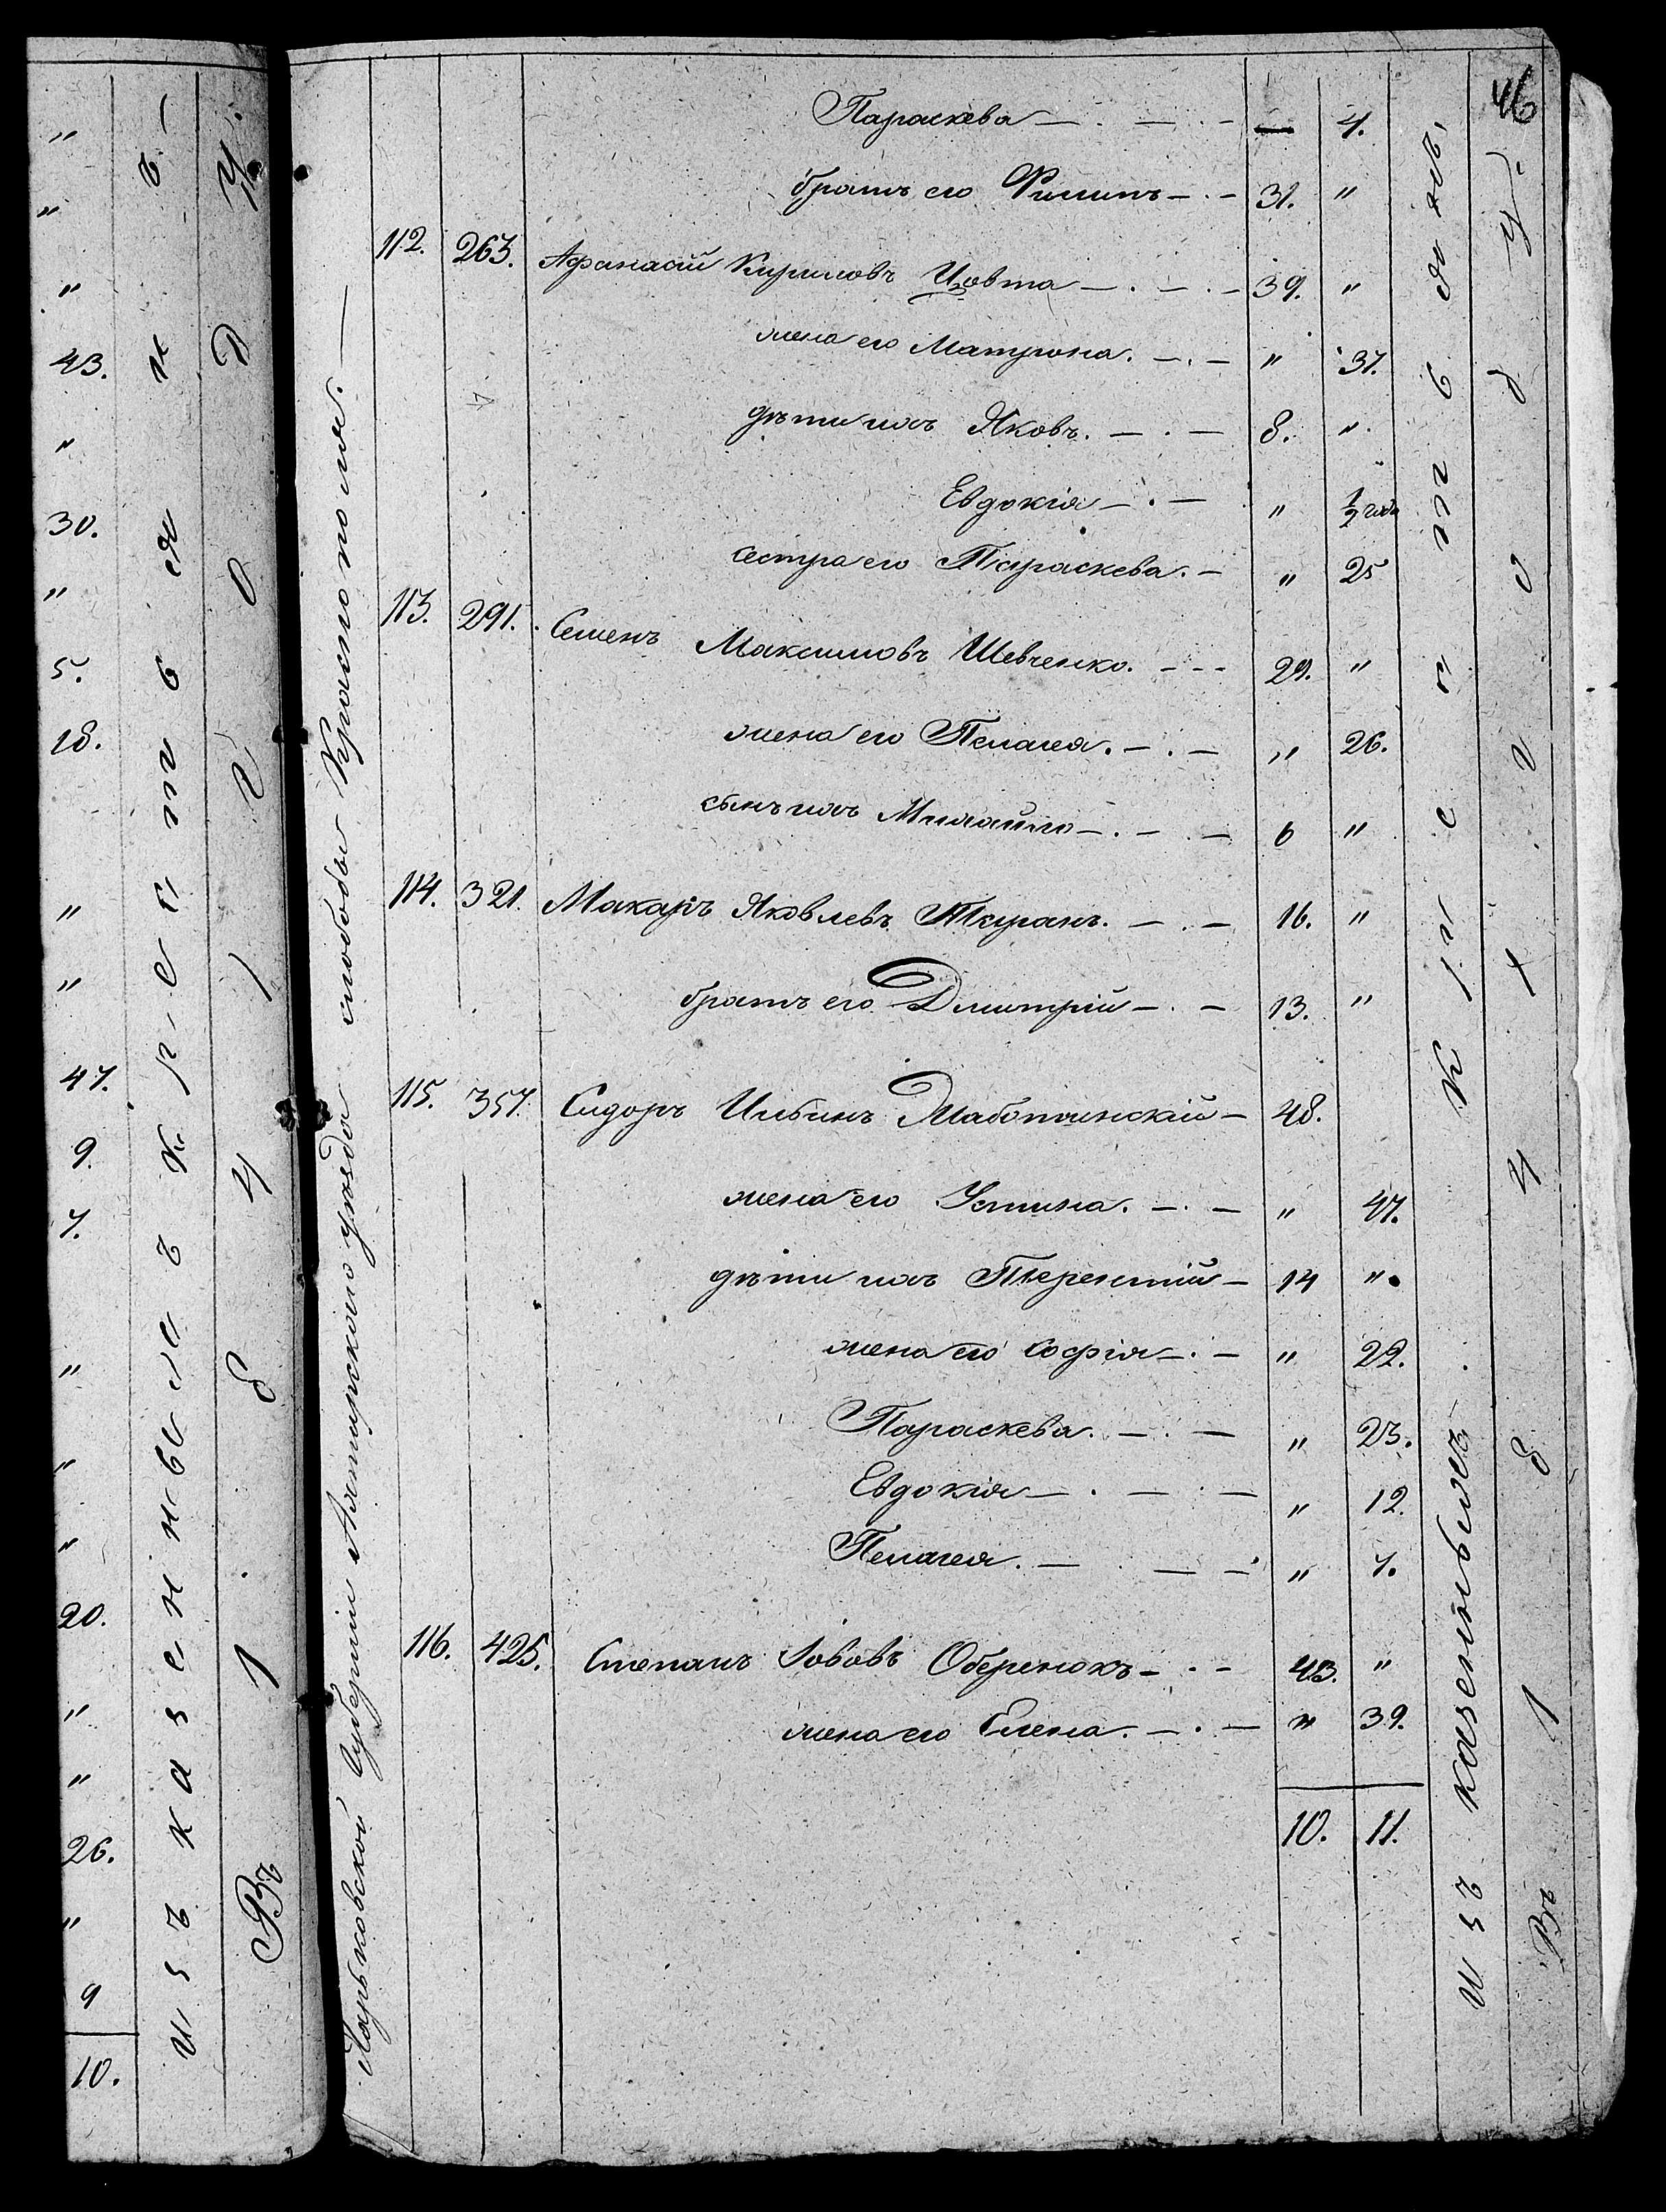 46
Параскева — . — . — — 4.
братъ его Филипъ — . — 31. "
112. 263. Афанасій Кириловъ Цовта — . — . — 39. "
жена его Матрона. — . — " 37.
дѣти ихъ Яковъ. — . — 8. "
Евдокія — . — " 1/2 года
сестра его Параскева. — " 25
113. 291. Семенъ Максимовъ Шевченко. — - - 29. "
жена его Пелагея. — . — " 26.
сынъ ихъ Михайло — . — . — 6 "
114. 321. Макаръ Яковлевъ Ткуранъ. — . — 16. "
братъ его Дмитрій — . — 13. "
115. 357. Сидоръ Ильинъ Шаботинскій — 48.
жена его Устина. — . — " 47.
дѣти ихъ Терентій — 14 "
жена его Софія — . — " 22.
Параскева. — . — " 23.
Евдокія — . — . — " 12.
Пелагея. — . — — " 7.
116. 425. Степанъ Іововъ Оберенокъ — . — 43. "
жена его Елена. — . — " 39.
10. 11.
Харьковской Губерніи Ахтырскаго уѣзда слободы Краснополья. —
Изъ казенныхъ Крестьянъ
Въ 1847 году.
"
"
"
43.
"
30.
"
5.
18.
"
"
47.
9.
7.
"
"
"
20.
"
"
26.
"
9
10.
Изъ казенныхъ Крестьянъ —
Въ 1847 году.